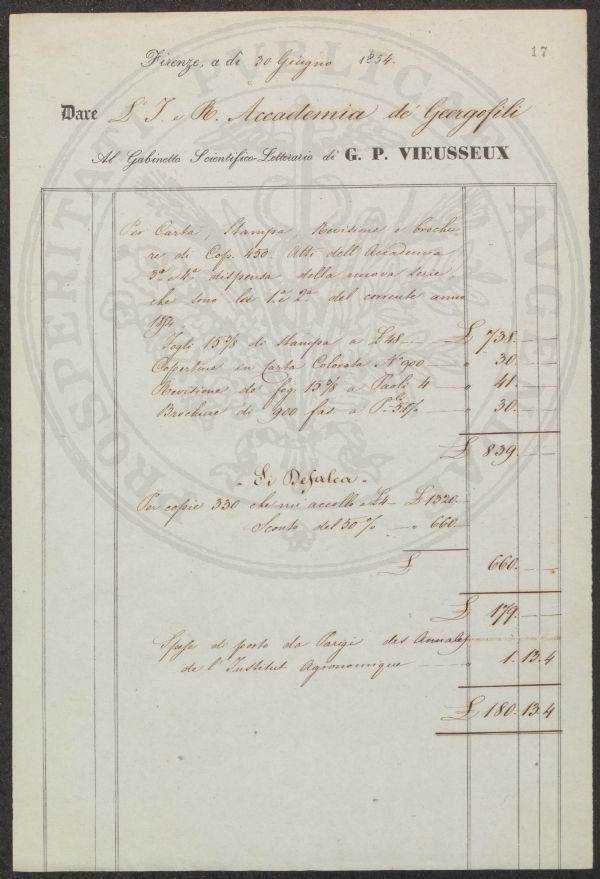 17
Firenze, a dì 30 Giugno 1854.
Dare L' I. e R. Accademia de' Georgofili
Al Gabinetto Scientifico-Letterario di G. P. VIEUSSEUX
PROSPERITATI PUBLICAE AUGENDA
Per Carta, Stampa, Revisione e brochu-
re di Cop. 450. Atti dell' Accademia
3a e 4a dispensa della nuova serie,
che sono la 1a e 2a del corrente anno
1854.
Fogli 15 3/8 di Stampa a £ 48 — £ 738. —
Copertine in Carta Colorata No 900 — " 30. —
Revisione de' fog. 15 3/8 a Paoli 4 — " 41. —
Brochure di 900 fas. a P.li 5 % — " 30. —
£ 839. —
- Si Defalca -
Per copie 330 che mi accollo a £ 4 — £ 1320 —
Sconto del 50 % — " 660
£ 660. —
£ 179. —
Spese di porto da Parigi des Annales
de l'Institut Agronomique — " 1. 13. 4
£ 180. 13. 4